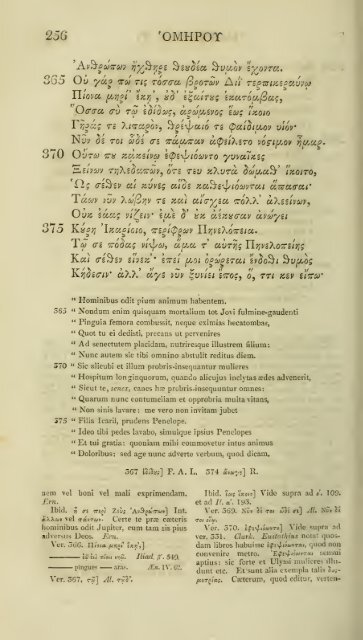 256 ὉΜΗΡΟΥ
Ἀνθρώπων ἤχθηρε θευδέα θυμὸν ἔχοντα.
365 Οὐ γάρ πώ τις τόσσα βροτῶν Διῒ τερπικεραύνῳ
Πίονα μηρί' ἔκη', ἐδ' ἐξαίτυς ἑκατόμβας,
Ὅσσα σὺ τῷ ἐδίδως, ἀρώμενος ἕως ἵκοιο
Γῆράς τε λιπαρὸν, θρέψαιό τε φαίδιμον υἱόν·
Νῦν δέ τοι ὧδέ σε πάμπαν ἀφείλετο νόσιμον ἦμαρ.
370 Οὕτω πυ κἀκείνῳ ἐφεψιόωντο γυναῖκες
Ξείνων τηλεδαπῶν, ὅτε τευ κλυτὰ δώμαθ' ἵκοιτο,
Ὡς σέθεν αἱ κύνες αἵδε καθεψιόωνται ἅπασαι·
Τάων νῦν λώβην τε καὶ αἴσχεα πόλλ' ἀλεείνων,
Οὐκ ἐάας νίζειν· ἐμὲ δ' ὐκ ἀέκυσαν ἀνώγει
375 Κύρη Ἰκαρίοιο, περίφρων Πηνελόπεια.
Τῷ σε πόδας νίψω, ἅμα τ' αὐτῆς Πηνελοπείης
Καὶ σέθεν εἵνεκ'· ἐπεί μοι ὀρώρεται ἔνδοθι θυμὸς
Κήδεσιν· ἀλλ' ἄγε νῦν ξυνίει ἔπος, ὅ, ττι κεν εἴπω·
" Hominibus odit pium animum habentem.
365 " Nondum enim quisquam mortalium tot Jovi fulmine-gaudenti
" Pinguia femora combussit, neque eximias hecatombas,
" Quot tu ei dedisti, precans ut pervenires
" Ad senectutem placidam, nutriresque illustrem filium:
" Nunc autem sic tibi omnino abstulit reditus diem.
370 " Sic alicubi et illum probris-insequantur mulieres
" Hospitum longinquorum, quando alicujus inclytas ædes advenerit,
" Sicut te, senex, canes hæ probris-insequuntur omnes:
" Quarum nunc contumeliam et opprobria multa vitans,
" Non sinis lavare: me vero non invitam jubet
375 " Filia Icarii, prudens Penelope.
" Ideo tibi pedes lavabo, simulque ipsius Penelopes
" Et tui gratia: quoniam mihi commovetur intus animus
" Doloribus: sed age nunc adverte verbum, quod dicam.
367 F. A. L. 374 R.
nem vel boni vel mali exprimendam.
Ern.
Ibid. Int.
vel Certe te præ cæteris
hominibus odit Jupiter, cum tam sis pius
adversus Deos. Ern.
Ver. 366. Πίονα μηρί' ἔκη'.]
Iliad. 549.
— pingues — aras. Æn. IV. 62.
Ver. 367. τῷ] Al.
Ibid. Vide supra ad 109.
et ad Il. 193.
Ver. 369. Al.
Ver. 370. Vide supra ad
ver. 331. Clark. Eustathius notat quosdam
libros habuisse quod non
convenire metro. sensui
aptius: sic forte et Ulyxi mulieres illudunt
etc. Et sunt alia exempla talis
Cæterum, quod editur, verten-